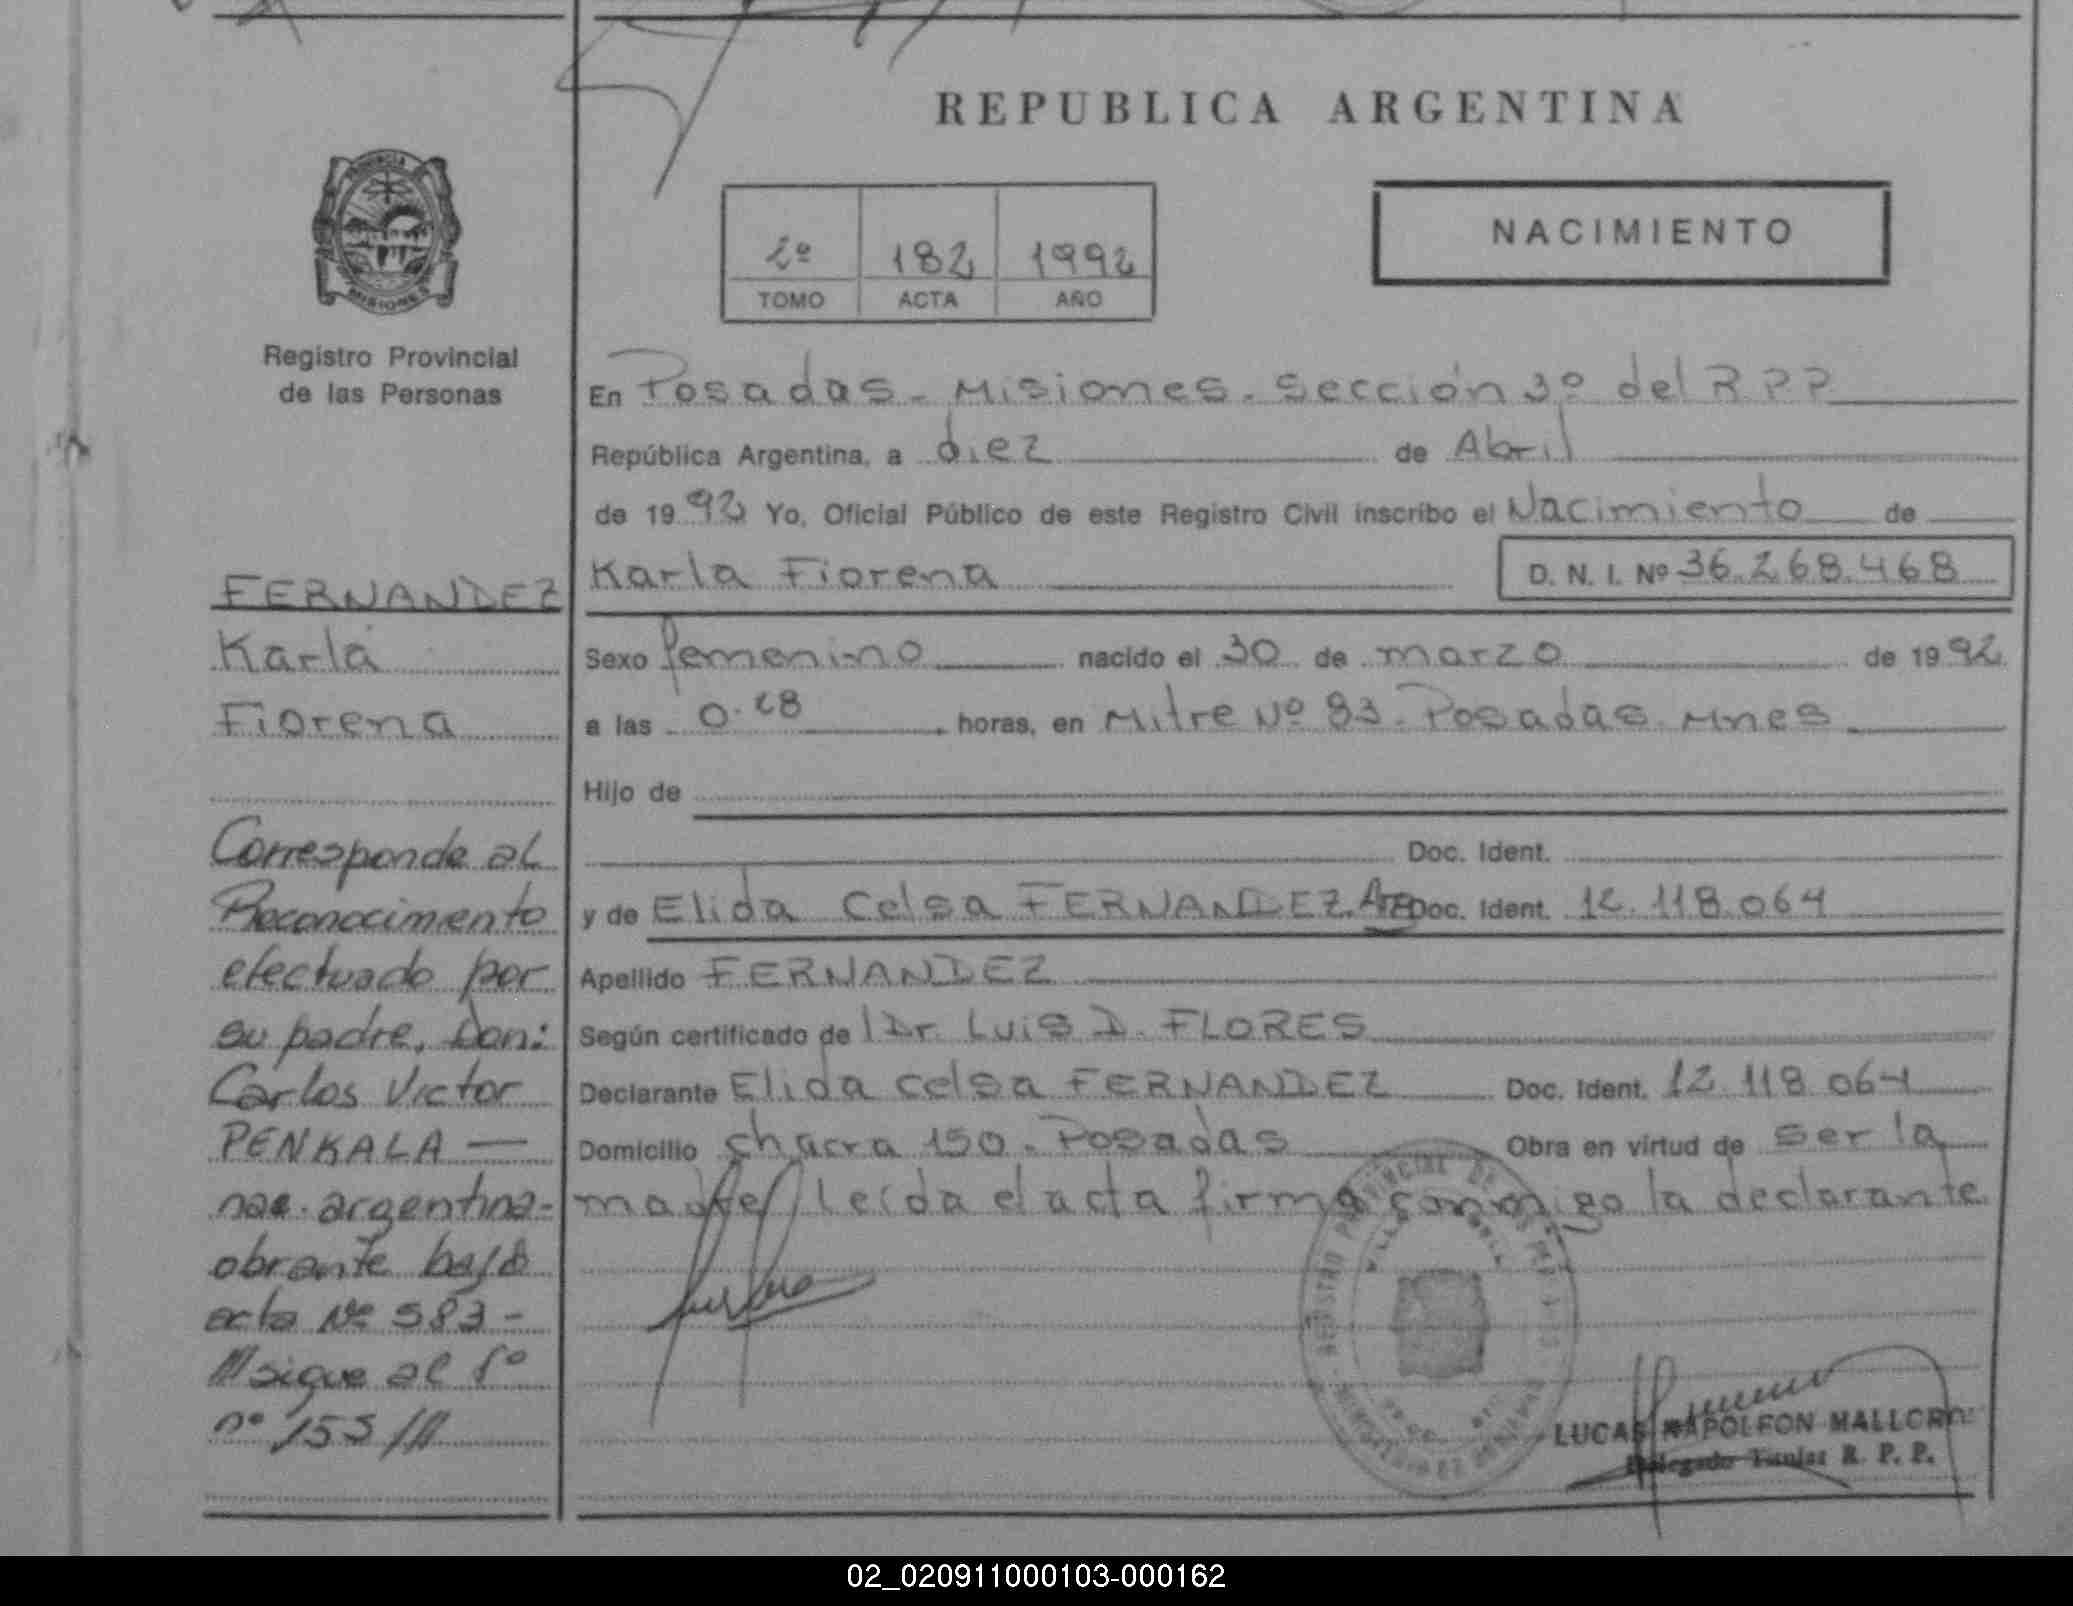 REPUBLICA ARGENTINA
PROVINCIA DE
MISIONES
Registro Provincial
de las Personas
2º 182 1992
TOMO ACTA AÑO
NACIMIENTO
En Posadas - Misiones. Sección 3º del R P P
República Argentina, a diez de Abril
de 1992 Yo, Oficial Público de este Registro Civil inscribo el Nacimiento de
Karla Fiorena D. N. I. Nº 36.268.468
Sexo femenino nacido el 30 de marzo de 1992
a las 0.28 horas, en Mitre Nº 83. Posadas. Mnes
Hijo de
Doc. Ident.
y de Elida Celsa FERNANDEZ. Arg Doc. Ident. 12.118.064
Apellido FERNANDEZ
Según certificado de Dr. Luis D. FLORES
Declarante Elida Celsa FERNANDEZ Doc. Ident. 12.118.064
Domicilio Chacra 150 - Posadas Obra en virtud de ser la
madre leída el acta firma conmigo la declarante
FERNANDEZ
Karla
Fiorena
Corresponde al
Reconocimiento
efectuado por
su padre, Don:
Carlos Victor
PENKALA —
nac. argentina-
obrante bajo
acta Nº 583 -
///sigue al fº
nº 153 ///
REGISTRO PROVINCIAL DE LAS PERSONAS
LUCAS NAPOLEON MALLOR
Delegado Titular R. P. P.
02_020911000103-000162